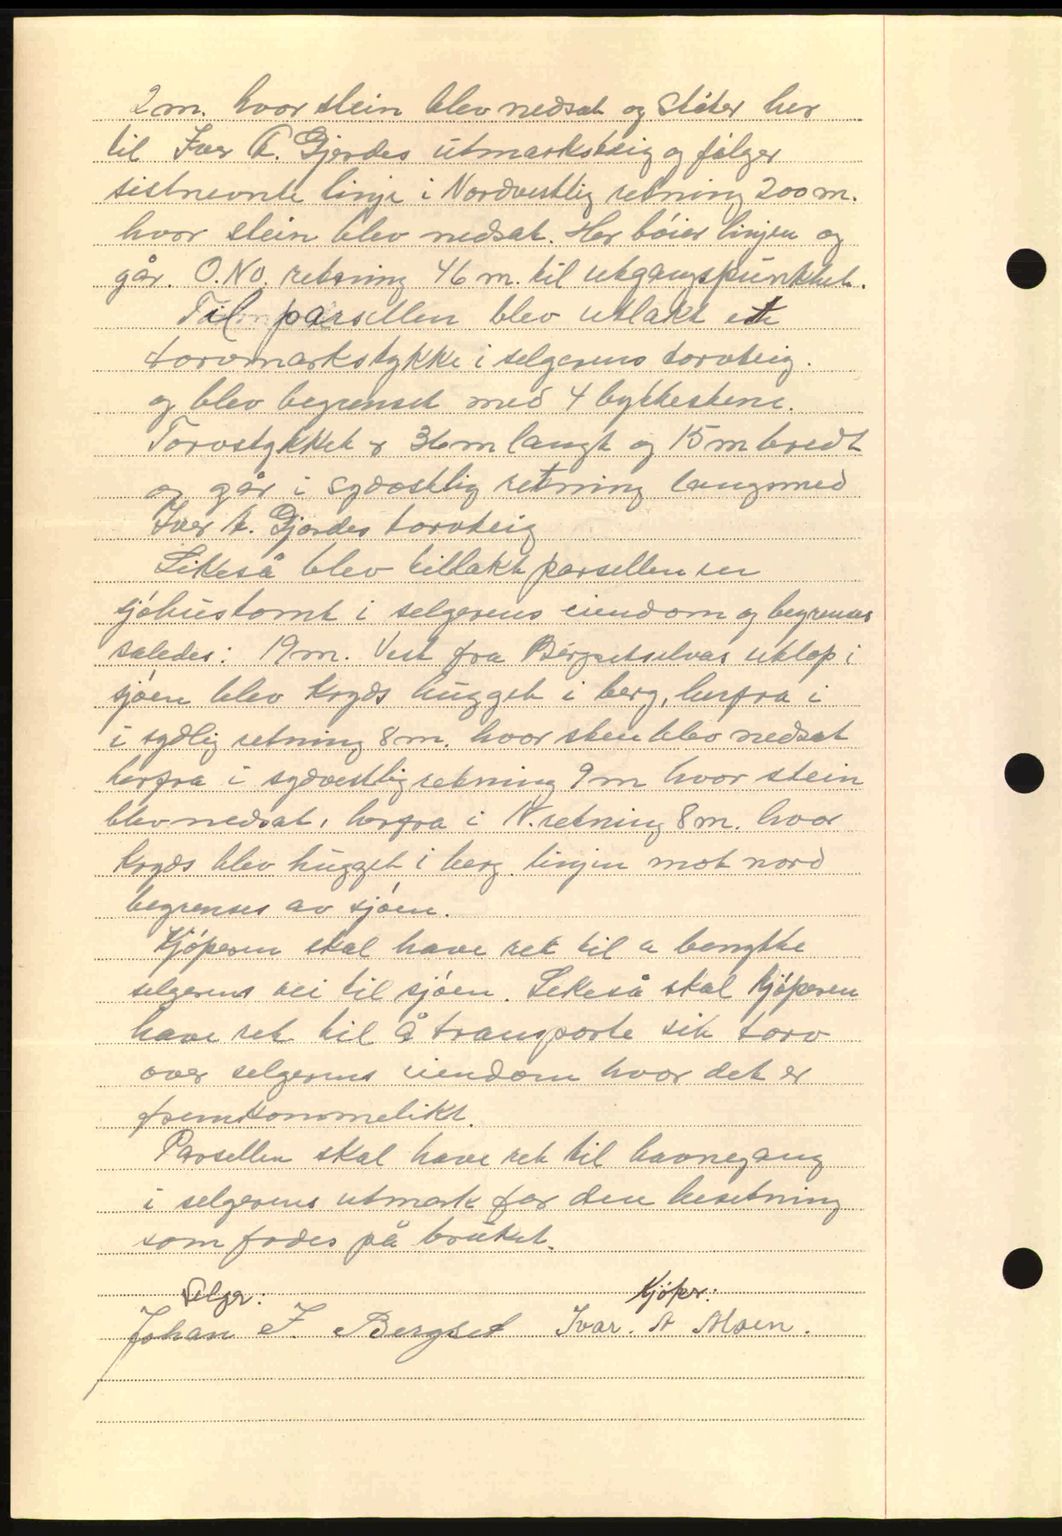 2 m. hvor stein blev nedsat og støter her
til Iver A. Gjerdes utmarksteig og følger
sistnevnte linje i Nordvestlig retning 200 m.
hvor stein blev nedsat. Her bøier linjen og
går. O.NO. retning 46 m. til utgangspunktet.
Til parsellen blev utlakt ett
torvmarkstykke i selgerens torvteig.
og blev begrenset med 4 byttestene.
Torvstykket er 36 m langt og 15 m bredt
og går i sydostlig retning langsmed
Iver A. Gjerdes torvteig
Likeså blev tillakt parsellen en
sjøhustomt i selgerens eiendom og begrenses
saledes: 19 m. Vest fra Bergsetselvas utløp i
sjøen blev kryds hugget i berg, herfra i
i sydlig retning 8 m. hvor sten blev nedsat
herfra i sydvestlig retning 9 m hvor stein
blev nedsat, herfra i N. retning 8 m. hvor
kryds blev hugget i berg. linjen mot nord
begrenses av sjøen.
Kjøperen skal have ret til a benytte
selgerens vei til sjøen. Likeså skal kjøperen
have ret til å transporte sit torv
over selgerens eiendom hvor det er
fremkommelikt.
Parsellen skal have ret til havnegang
i selgerens utmark for den besetning
som fødes på bruket.
Selger: Kjøper:
Johan I. Bergset Ivar. A Alsen.